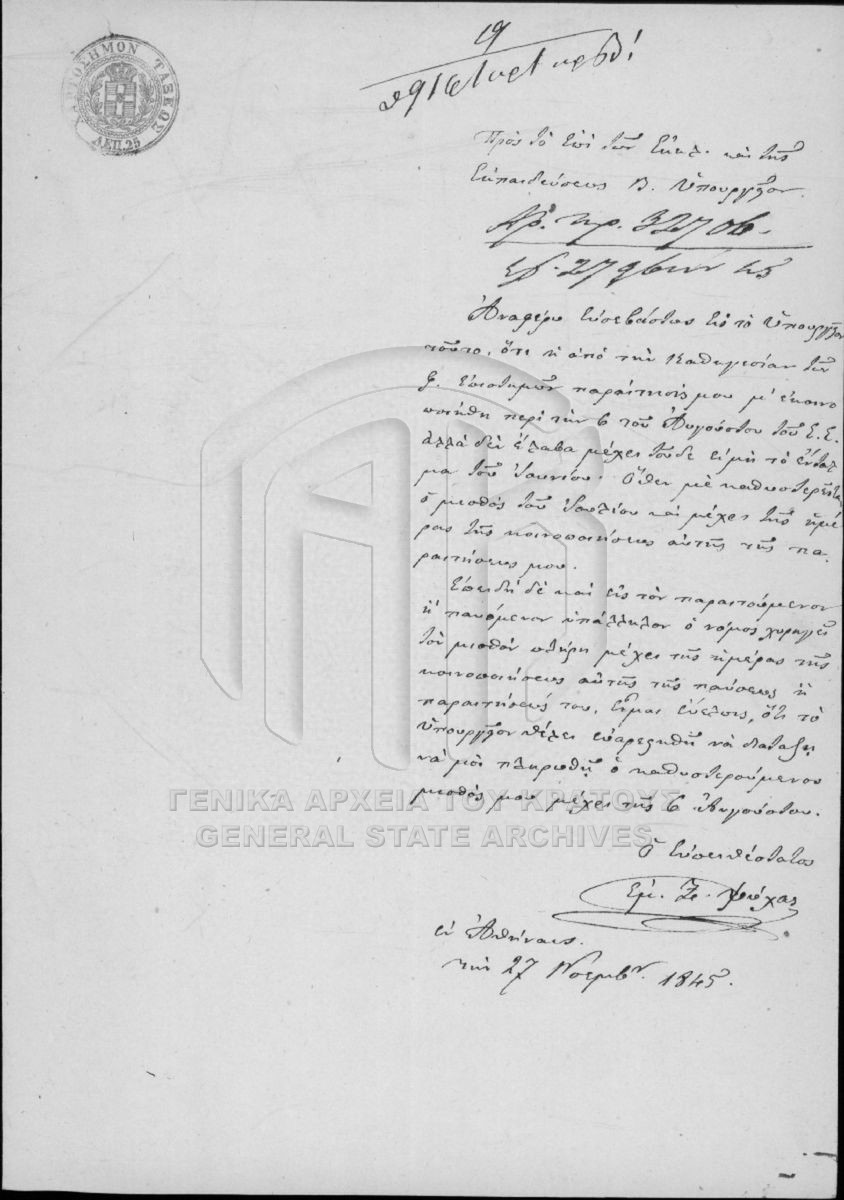 ΧΑΡΤΟΣΗΜΟΝ ΤΑΞΕΩΣ
ΛΕΠ.25
19
Πρὸς τὸ ἐπὶ τῶν Ἐκκλ. καὶ τῆς
Ἐκπαιδεύσεως Β. Ὑπουργεῖον.
Ἀρ. πρ. 32706
27 45
Ἀναφέρω εὐσεβάστως εἰς τὸ Ὑπουργεῖον
τοῦτο, ὅτι ἡ ἀπὸ τὴν καθηγεσίαν τῶν
φ. ἐπιστημῶν παραίτησίς μου μ' ἐκοινο
ποιήθη περὶ τὴν 6 τοῦ Αὐγούστου τοῦ ἔ. ἔ.
ἀλλὰ δὲν ἔλαβα μέχρι τοῦδε εἰμὴ τὸ ἔνταλ
μα τοῦ Ἰουνίου. Ὅθεν μὲ καθυστερεῖται
ὁ μισθὸς τοῦ Ἰουλίου καὶ μέχρι τῆς ἡμέ
ρας τῆς κοινοποιήσεως αὐτῆς τῆς πα
ραιτήσεώς μου.
Ἐπειδὴ δὲ καὶ εἰς τὸν παραιτούμενον
ἢ παυόμενον ὑπάλληλον ὁ νόμος χορηγεῖ
τὸν μισθὸν πλήρη μέχρι τῆς ἡμέρας τῆς
κοινοποιήσεως αὐτῆς τῆς παύσεως ἢ
παραιτήσεώς του, εἶμαι εὔελπις, ὅτι τὸ
Ὑπουργεῖον θέλει εὐαρεστηθῆ νὰ διατάξῃ
νὰ μοὶ πληρωθῇ ὁ καθυστερούμενος
μισθός μου μέχρι τῆς 6 Αὐγούστου.
ΓΕΝΙΚΑ ΑΡΧΕΙΑ ΤΟΥ ΚΡΑΤΟΥΣ
GENERAL STATE ARCHIVES
Ὁ εὐπειθέστατος
Ἐμ. Ψύχας
ἐν Ἀθήναις.
τὴν 27 Νοεμβ. 1845.